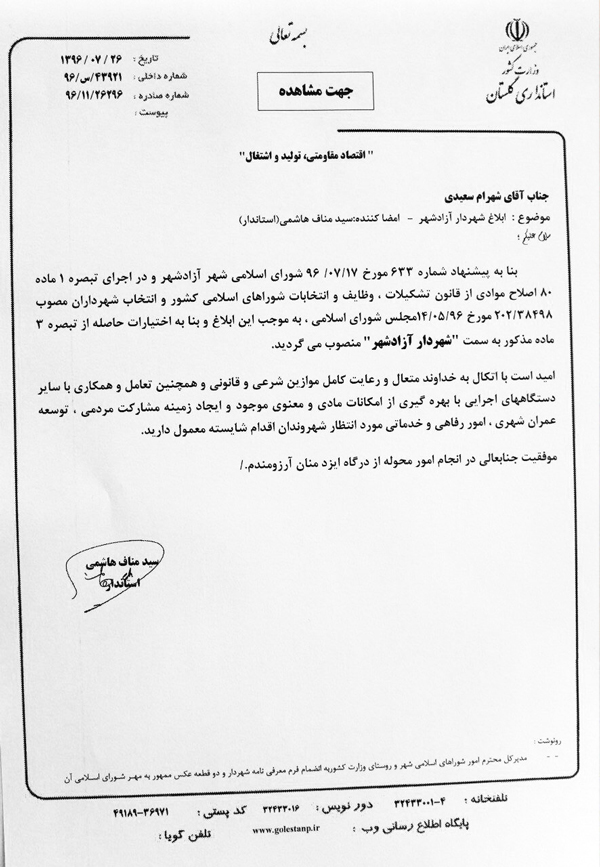 بسمه تعالی
جمهوری اسلامی ایران
وزارت کشور
استانداری گلستان
تاریخ : ۱۳۹۶/۰۷/۲۶
شماره داخلی : ۹۶/س/۴۳۹۲۱
شماره صادره : ۹۶/۱۱/۲۶۲۹۶
پیوست :
جهت مشاهده
" اقتصاد مقاومتی، تولید و اشتغال"
جناب آقای شهرام سعیدی
موضوع : ابلاغ شهردار آزادشهر - امضا کننده:سید مناف هاشمی(استاندار)
سلام علیکم ؛
بنا به پیشنهاد شماره ۶۳۳ مورخ ۹۶/۰۷/۱۷ شورای اسلامی شهر آزادشهر و در اجرای تبصره ۱ ماده
۸۰ اصلاح موادی از قانون تشکیلات ، وظایف و انتخابات شوراهای اسلامی کشور و انتخاب شهرداران مصوب
۲۰۲/۳۸۴۹۸ مورخ ۱۴/۰۵/۹۶مجلس شورای اسلامی ، به موجب این ابلاغ و بنا به اختیارات حاصله از تبصره ۳
ماده مذکور به سمت "شهردار آزادشهر" منصوب می گردید.
امید است با اتکال به خداوند متعال و رعایت کامل موازین شرعی و قانونی و همچنین تعامل و همکاری با سایر
دستگاههای اجرایی با بهره گیری از امکانات مادی و معنوی موجود و ایجاد زمینه مشارکت مردمی ، توسعه
عمران شهری ، امور رفاهی و خدماتی مورد انتظار شهروندان اقدام شایسته معمول دارید.
موفقیت جنابعالی در انجام امور محوله از درگاه ایزد منان آرزومندم./
سید مناف هاشمی
استاندار
رونوشت :
- - مدیرکل محترم امور شوراهای اسلامی شهر و روستای وزارت کشوربه انضمام فرم معرفی نامه شهردار و دو قطعه عکس ممهور به مهر شورای اسلامی آن
تلفنخانه : ۴-۳۲۴۳۳۰۰۱ دور نویس : ۳۲۴۳۳۰۱۶ کد پستی : ۳۶۹۷۱-۴۹۱۸۹
پایگاه اطلاع رسانی وب : www.golestanp.ir تلفن گویا :